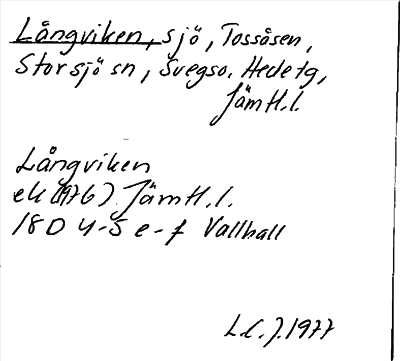 Långviken, sjö, Tossåsen,
Storsjö sn, Svegso. Hede tg,
Jämtl.l.
Långviken
ek (1976) Jämtl.l.
18D 4-5 e-f Vallhall
L.C.J. 1977